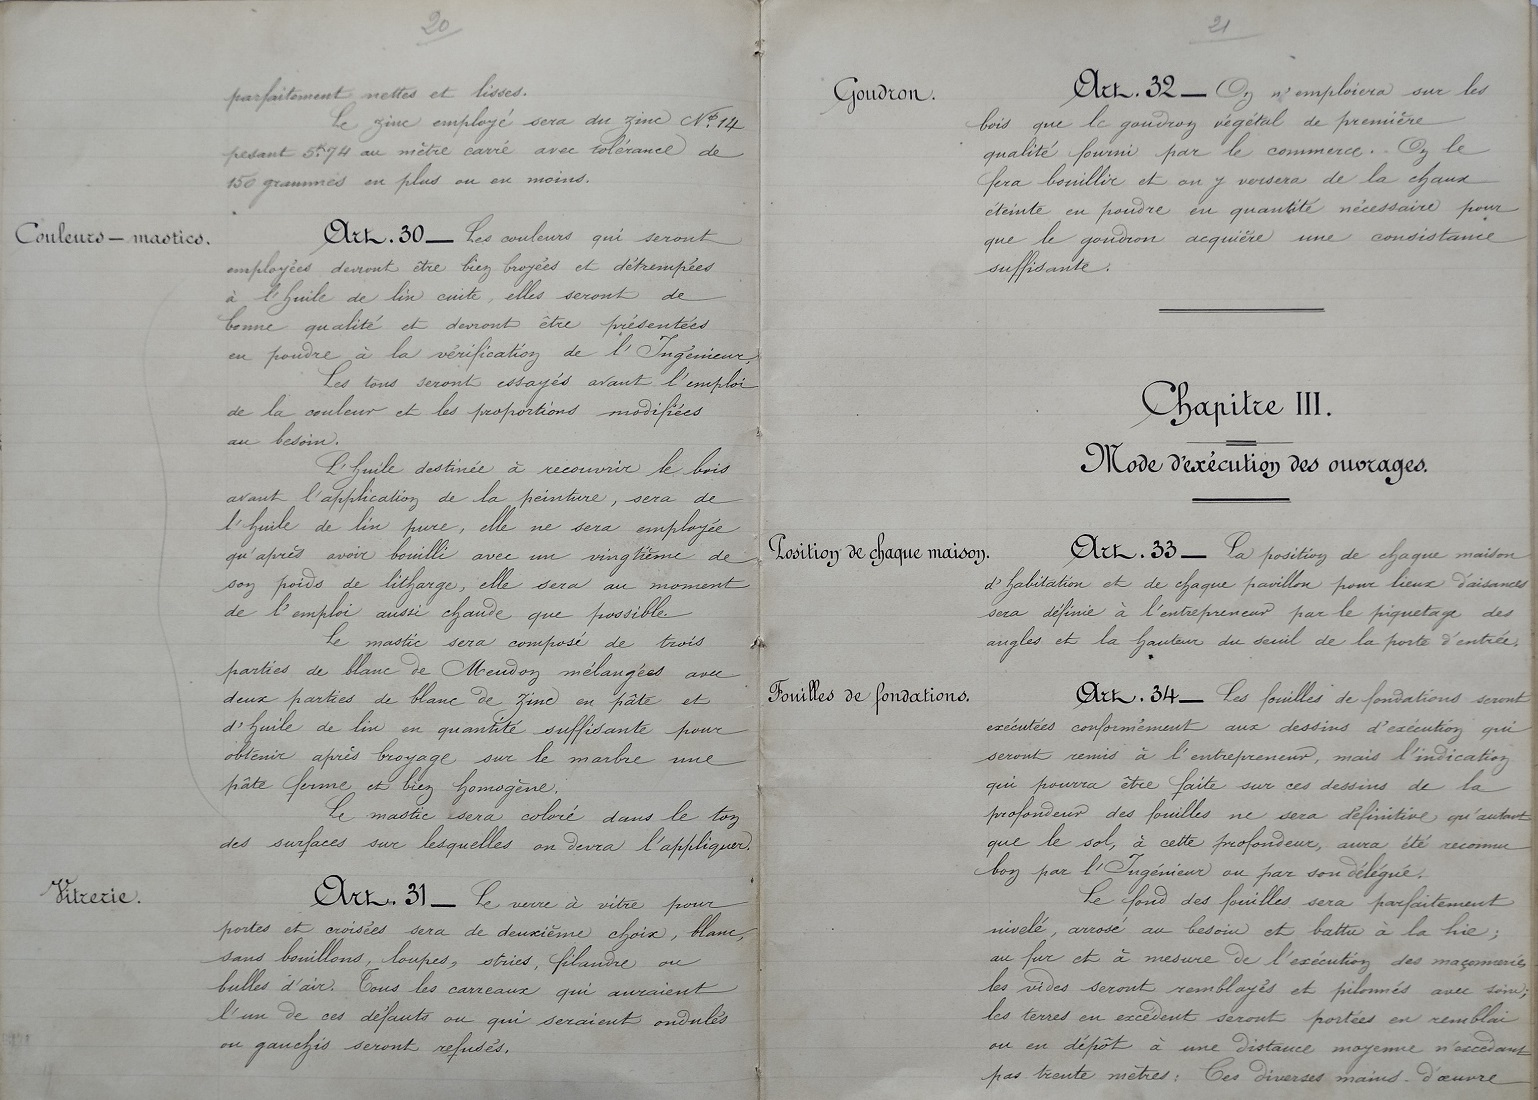 20
parfaitement nettes et lisses.
Le zinc employé sera du zinc N° 14
pesant 5k74 au mètre carré avec tolérance de
150 grammes en plus ou en moins.
Couleurs – mastics.
Art. 30 — Les couleurs qui seront
employées devront être bien broyées et détrempées
à l'huile de lin cuite, elles seront de
bonne qualité et devront être présentées
en poudre à la vérification de l'Ingénieur.
Les tons seront essayés avant l'emploi
de la couleur et les proportions modifiées
au besoin.
L'huile destinée à recouvrir le bois
avant l'application de la peinture, sera de
l'huile de lin pure, elle ne sera employée
qu'après avoir bouilli avec un vingtième de
son poids de litharge, elle sera au moment
de l'emploi aussi chaude que possible
Le mastic sera composé de trois
parties de blanc de Meudon mélangées avec
deux parties de blanc de zinc en pâte et
d'huile de lin en quantité suffisante pour
obtenir après broyage sur le marbre une
pâte ferme et bien homogène.
Le mastic sera coloré dans le ton
des surfaces sur lesquelles on devra l'appliquer.
Vitrerie.
Art. 31 — Le verre à vitre pour
portes et croisées sera de deuxième choix, blanc,
sans bouillons, loupes, stries, filandre ou
bulles d'air. Tous les carreaux qui auraient
l'un de ces défauts ou qui seraient ondulés
ou gauchis seront refusés.
21
Goudron.
Art. 32 — On n'emploiera sur les
bois que le goudron végétal de première
qualité fourni par le commerce. On le
fera bouillir et on y versera de la chaux
éteinte en poudre en quantité nécessaire pour
que le goudron acquière une consistance
suffisante.
Chapitre III.
Mode d'exécution des ouvrages.
Position de chaque maison.
Art. 33 — La position de chaque maison
d'habitation et de chaque pavillon pour lieux d'aisances
sera définie à l'entrepreneur par le piquetage des
angles et la hauteur du seuil de la porte d'entrée.
Fouilles de fondations.
Art. 34 — Les fouilles de fondations seront
exécutées conformément aux dessins d'exécution qui
seront remis à l'entrepreneur, mais l'indication
qui pourra être faite sur ces dessins de la
profondeur des fouilles ne sera définitive qu'autant
que le sol, à cette profondeur, aura été reconnu
bon par l'Ingénieur ou par son délégué.
Le fond des fouilles sera parfaitement
nivelé, arrosé au besoin et battu à la hie;
au fur et à mesure de l'exécution des maçonneries
les vides seront remblayés et pilonnés avec soin;
les terres en excédent seront portées en remblai
ou en dépôt à une distance moyenne n'excédant
pas trente mètres: Ces diverses mains-d'œuvre